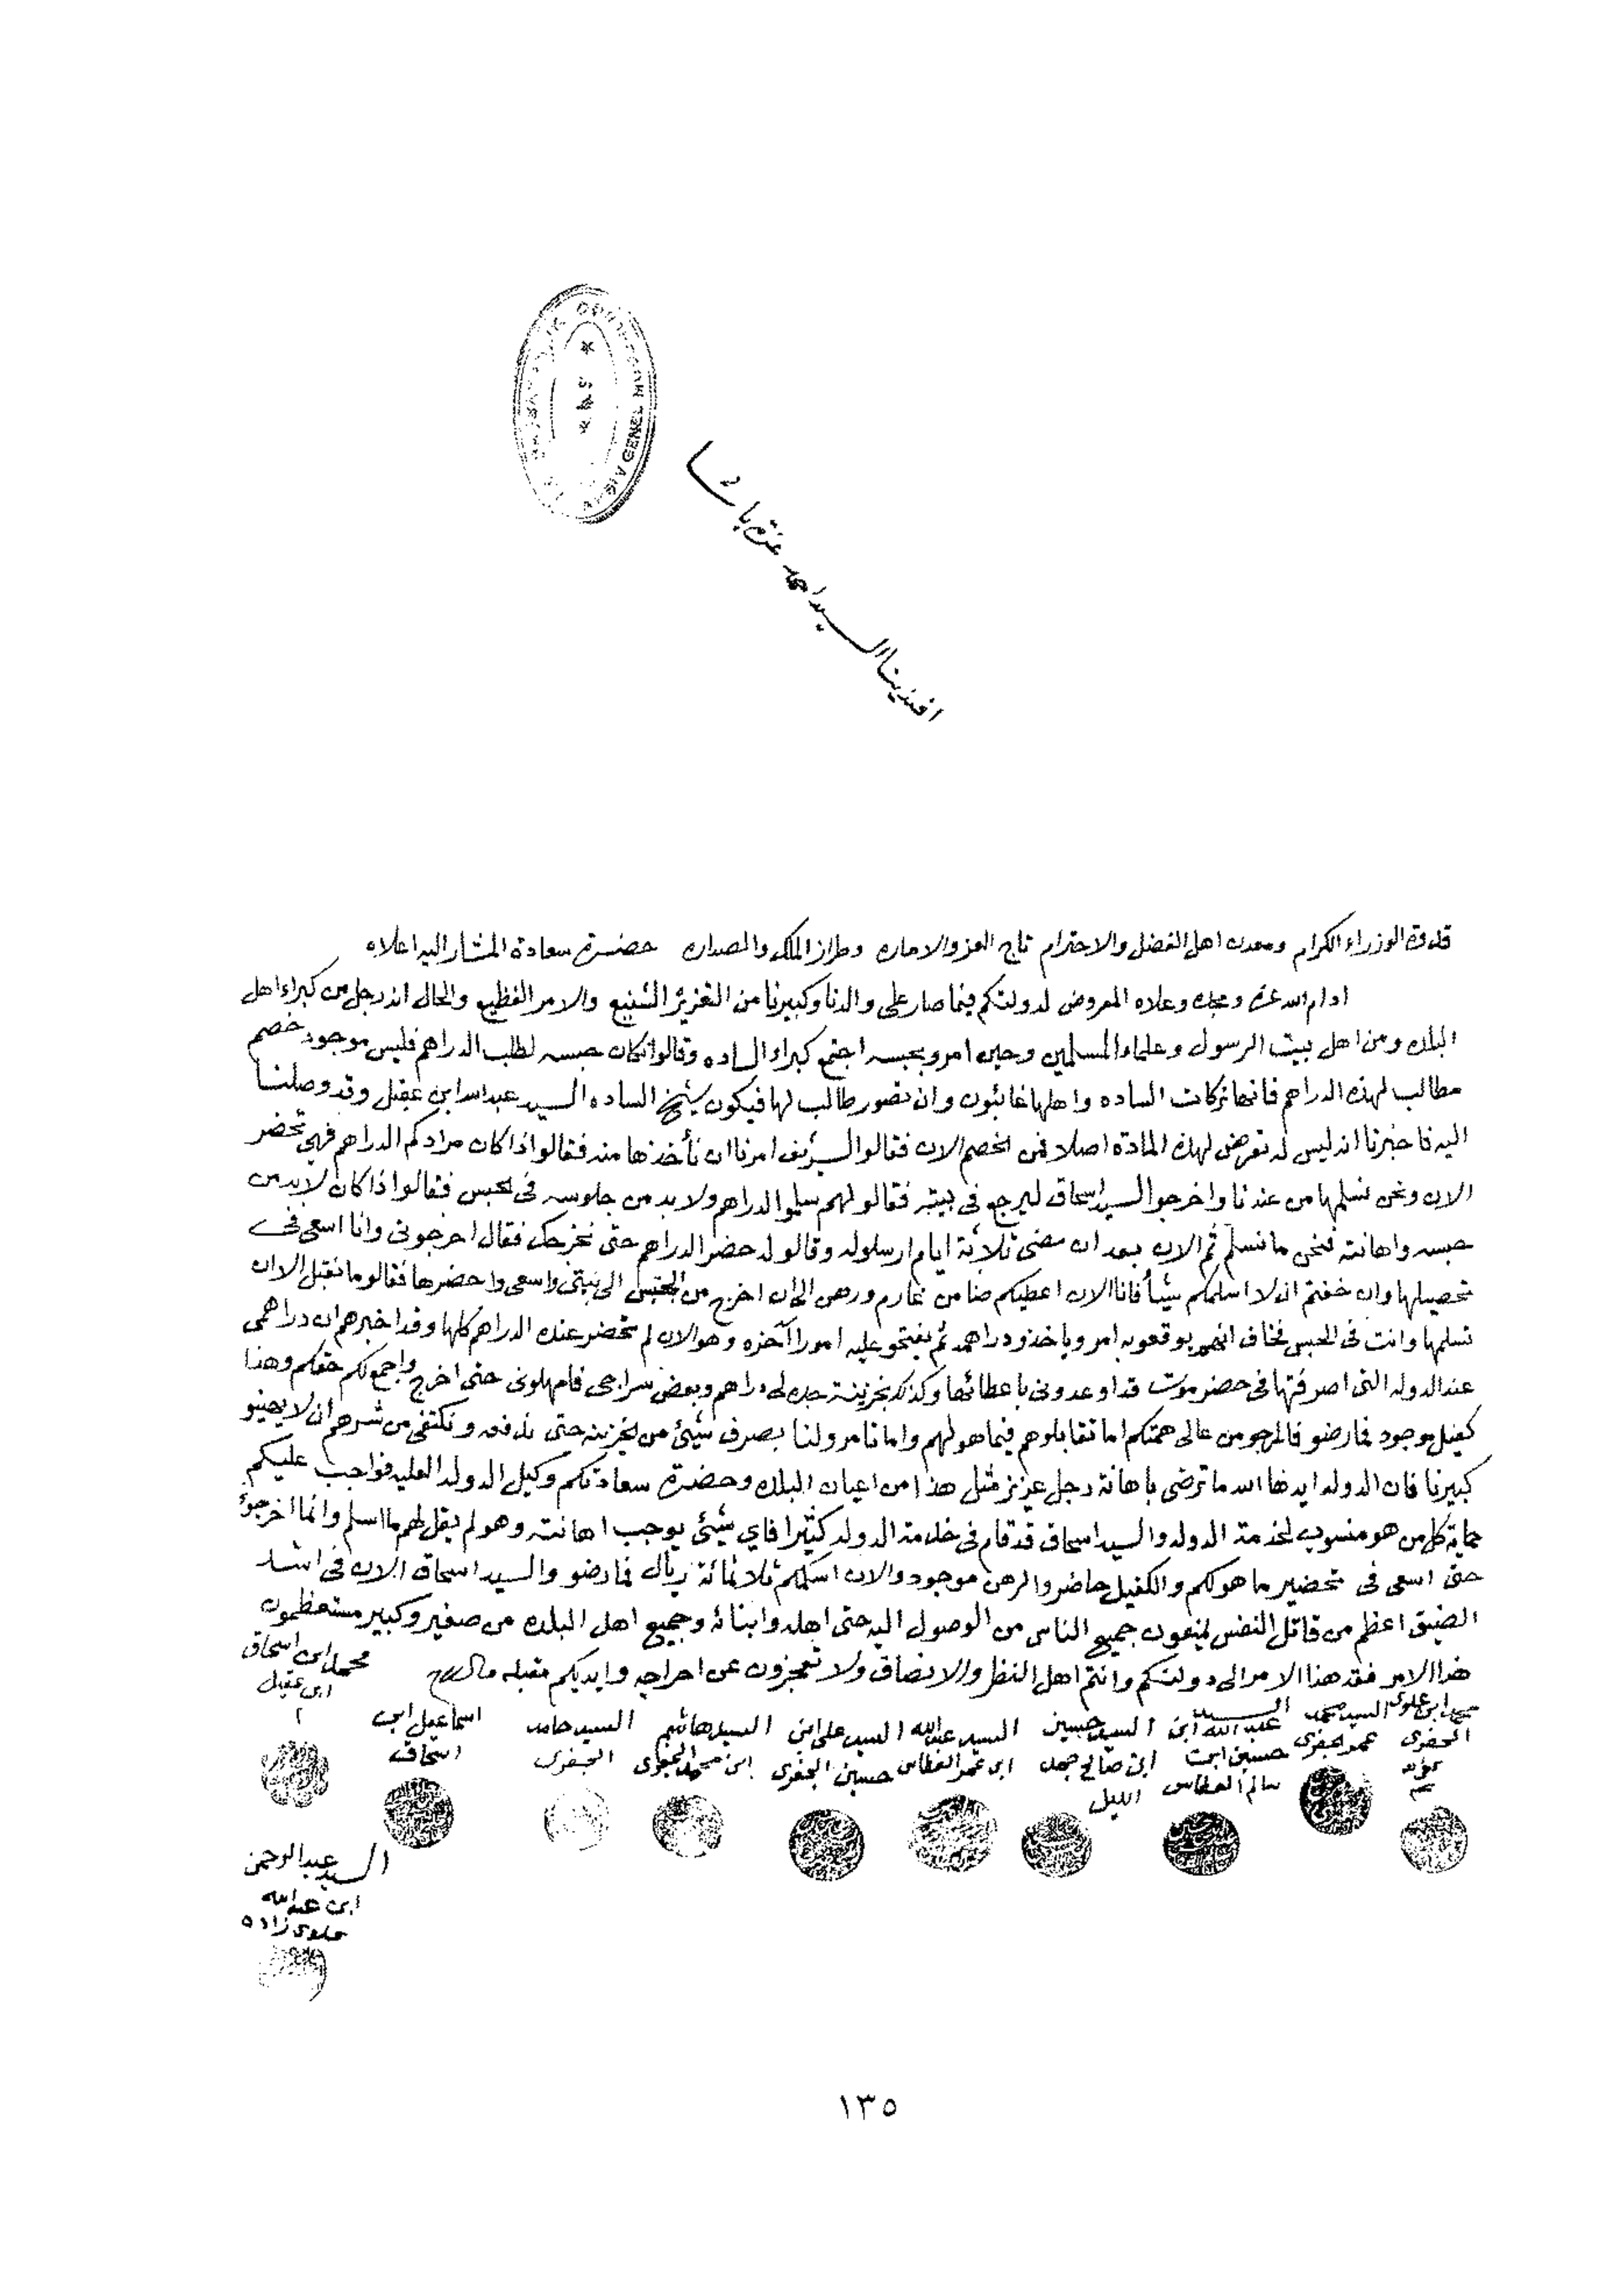 افندينا السيد احمد عزة باشا
قدوة الوزراء الكرام ومعدن اهل الفضل والاحترام تاج العز والاماره وطراز الملك والصداره حضرة سعادة المشار اليه اعلاه
ادام الله عزه ومجده وعلاه المعروض لدولتكم فيما صار على والدنا وكبيرنا من التعزير الشنيع والامر الفظيع والحال انه رجل من كبراء اهل
البلده ومن اهل بيت الرسول وعلماء المسلمين وحين امرو بحبسه اجتمع كبراء الساده وقالوا ان كان حبسه لطلب الدراهم فليس موجود خصم
مطالب لهذه الدراهم فانها تركات الساده واهلها غائبون وان تصور طالب لها فيكون شيخ الساده السيد عبدالله ابن عقيل وقد وصلنا
اليه فاخبرنا انه ليس له تعرض لهذه المادة اصلا فمن الخصم الان فقالو الشريف امرنا ان نأخذها منه فقالو اذا كان مرادكم الدراهم فهي تحضر
الان ونحن نسلمها من عندنا واخرجوا السيد اسحاق ليرجع في بيته فقالو لهم سلموا الدراهم ولا بد من جلوسه في الحبس فقالوا اذا كان لابد من
حبسه واهانته فنحن ما نسلم ثم الان بعد ان مضى ثلاثة ايام ارسلوله وقالو له حضر الدراهم حتى نخرجك فقال اخرجوني وانا اسعى في
تحصيلها وان خفتم اني لا اسلمكم شيأ فانا الان اعطيكم ضامن غارم ورهن الى ان اخرج من الحبس الى بيتي واسعى واحضرها فقالو ما نقبل الا ان
تسلمها وانت في الحبس فخاف انهم يوقعو به امر وياخذو دراهمه ثم يفتحو عليه امورا آخره وهو الان لم تحضر عنده الدراهم كلها وقد اخبرهم ان دراهمي
عند الدوله التي اصرفتها في حضرموت قد اوعدوني باعطائها وكذلك بخزينة جده لي دراهم وبعض سراجي فامهلوني حتى اخرج واجمع لكم حقكم وهذا
كفيل موجود فما رضو فالمرجو من عالي همتكم اما تقابلوهم فيما هو لهم واما تامرو لنا بصرف شيئ من الخزينه حتى ندفعه ونكتفي من شرهم ان لا يهينو
كبيرنا فان الدوله ايدها الله ما ترضى باهانة رجل عزيز مثل هذا من اعيان البلده وحضرة سعادتكم وكيل الدولة العليه فواجب عليكم
حماية كل من هو منسوب لخدمة الدوله والسيد اسحاق قد قام في خدمة الدوله كثيرا فاي شيئ يوجب اهانته وهو لم يقل لهم ما اسلم وانما اخرجو
حتى اسعى في تحضير ما هو لكم والكفيل حاضر والرهن موجود والان اسلمكم ثلاثمائة ريال فما رضو والسيد اسحاق الان في اشد
الضيق اعظم من قاتل النفس يمنعون جميع الناس من الوصول اليه حتى اهله وابنائه وجميع اهل البلده من صغير وكبير مستعظمون
هذا الامر فقدمنا الامر الى دولتكم وانتم اهل النظر والانصاف ولا تعجزون عن اخراجه وايديكم مقبله والسلام
محمد ابن علوي الجفري
السيد محمد عمر الجفري
السيد عبد الله ابن حسين ابن سالم العطاس
السيد حسين ابن صالح جمل الليل
السيد عبد الله ابن عمر العطاس
السيد علي ابن حسين الجفري
السيد هاشم ابن محمد الجفري
السيد حامد الجفري
اسماعيل ابن اسحاق
محمد ابن اسحاق ابن عقيل
السيد عبد الرحمن ابن عبد الله علوي زاده
١٣٥